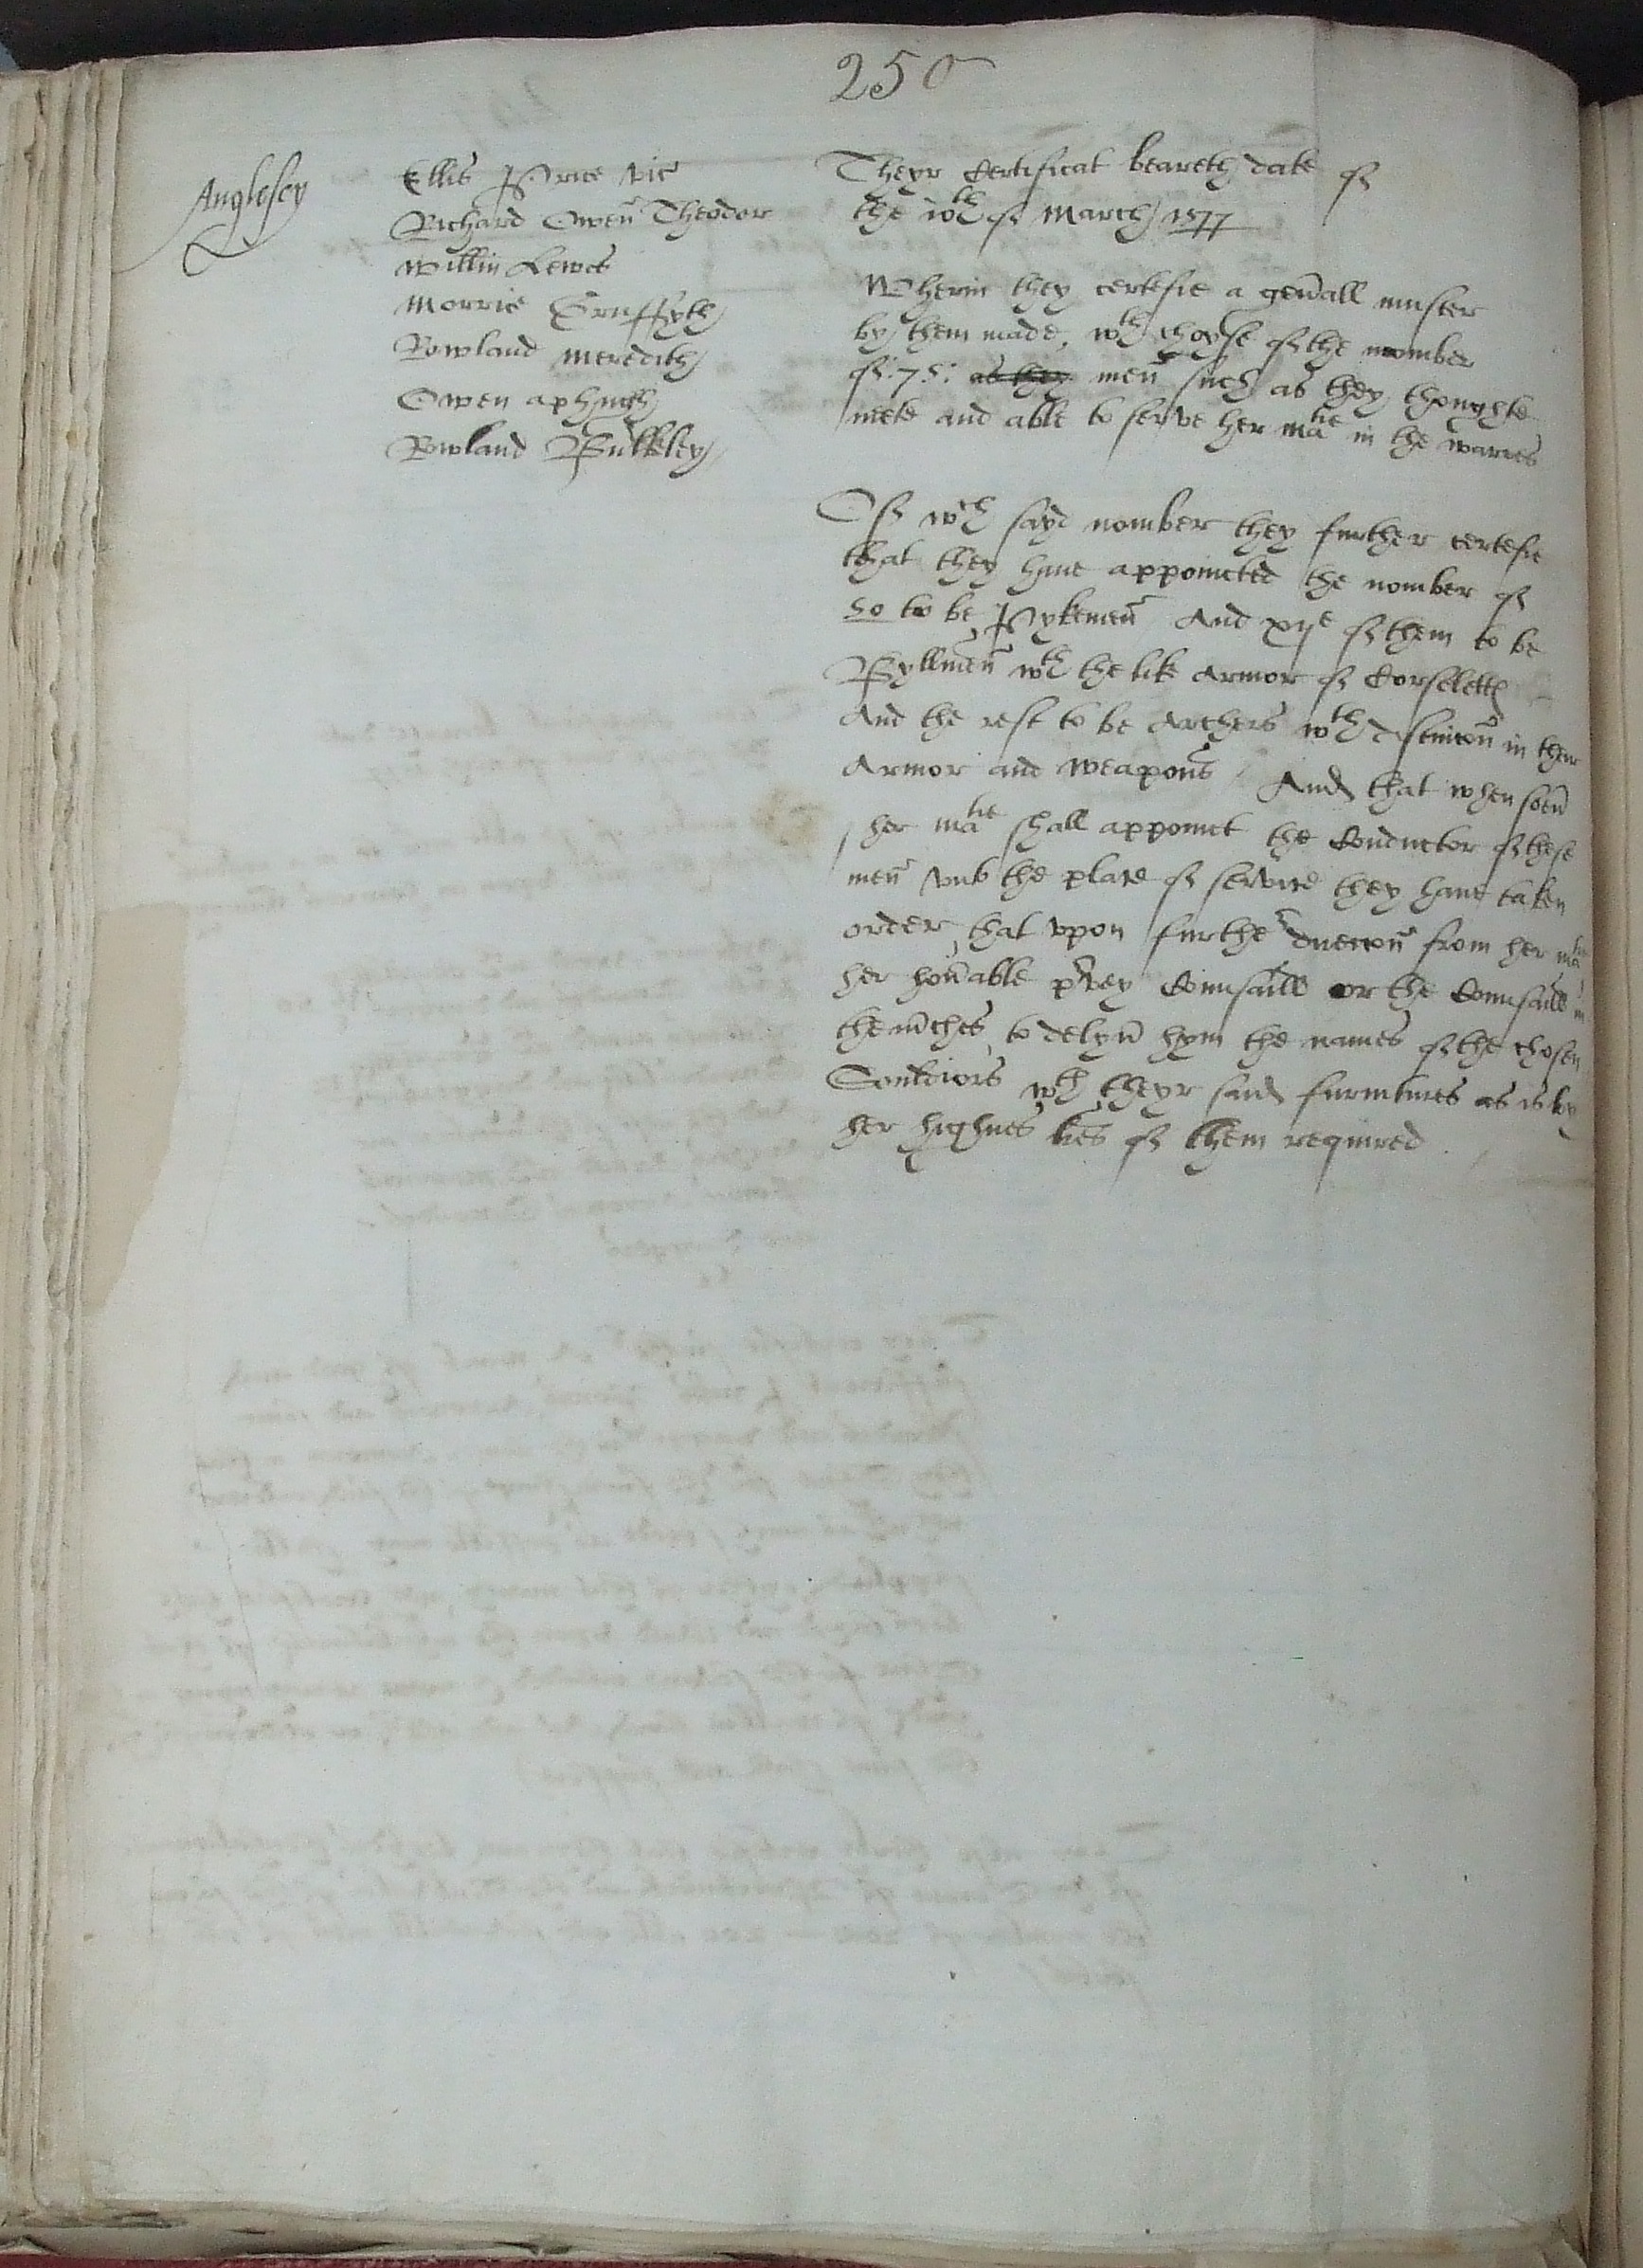 250
Anglesey
Ellis Price vic
Richard Owen Theodor
Willm Lewes
Morris Gruffyth
Rowland Meredith
Owen ap hugh
Rowland Bulkeley
Theyr Certificat beareth date of
the of March 1577
Wherin they certefie a gen'all muster
by them made, wth choyse of the nomber
of .75. as they men such as they thoughte
mete and able to serve her matie in the warres
Of wch sayd nomber they further certefie
that they have appointed the nomber of
50 to be Pykemen And xije of them to be
Byllmen wth the like Armor of Corseletts
And the rest to be Archers wth in their
Armor and weapons And that when soeu'
her matie shall appoinct the Conductor of these
men vnto the place of service they have taken
order that vpon further direccon from her matie
her hon'able privey Counsaill or the Counsaill in
the m'ches to delyu' hym the names of the chosen
Souldiors wth theyr said furnitures as is by
her highnes l'res of them required